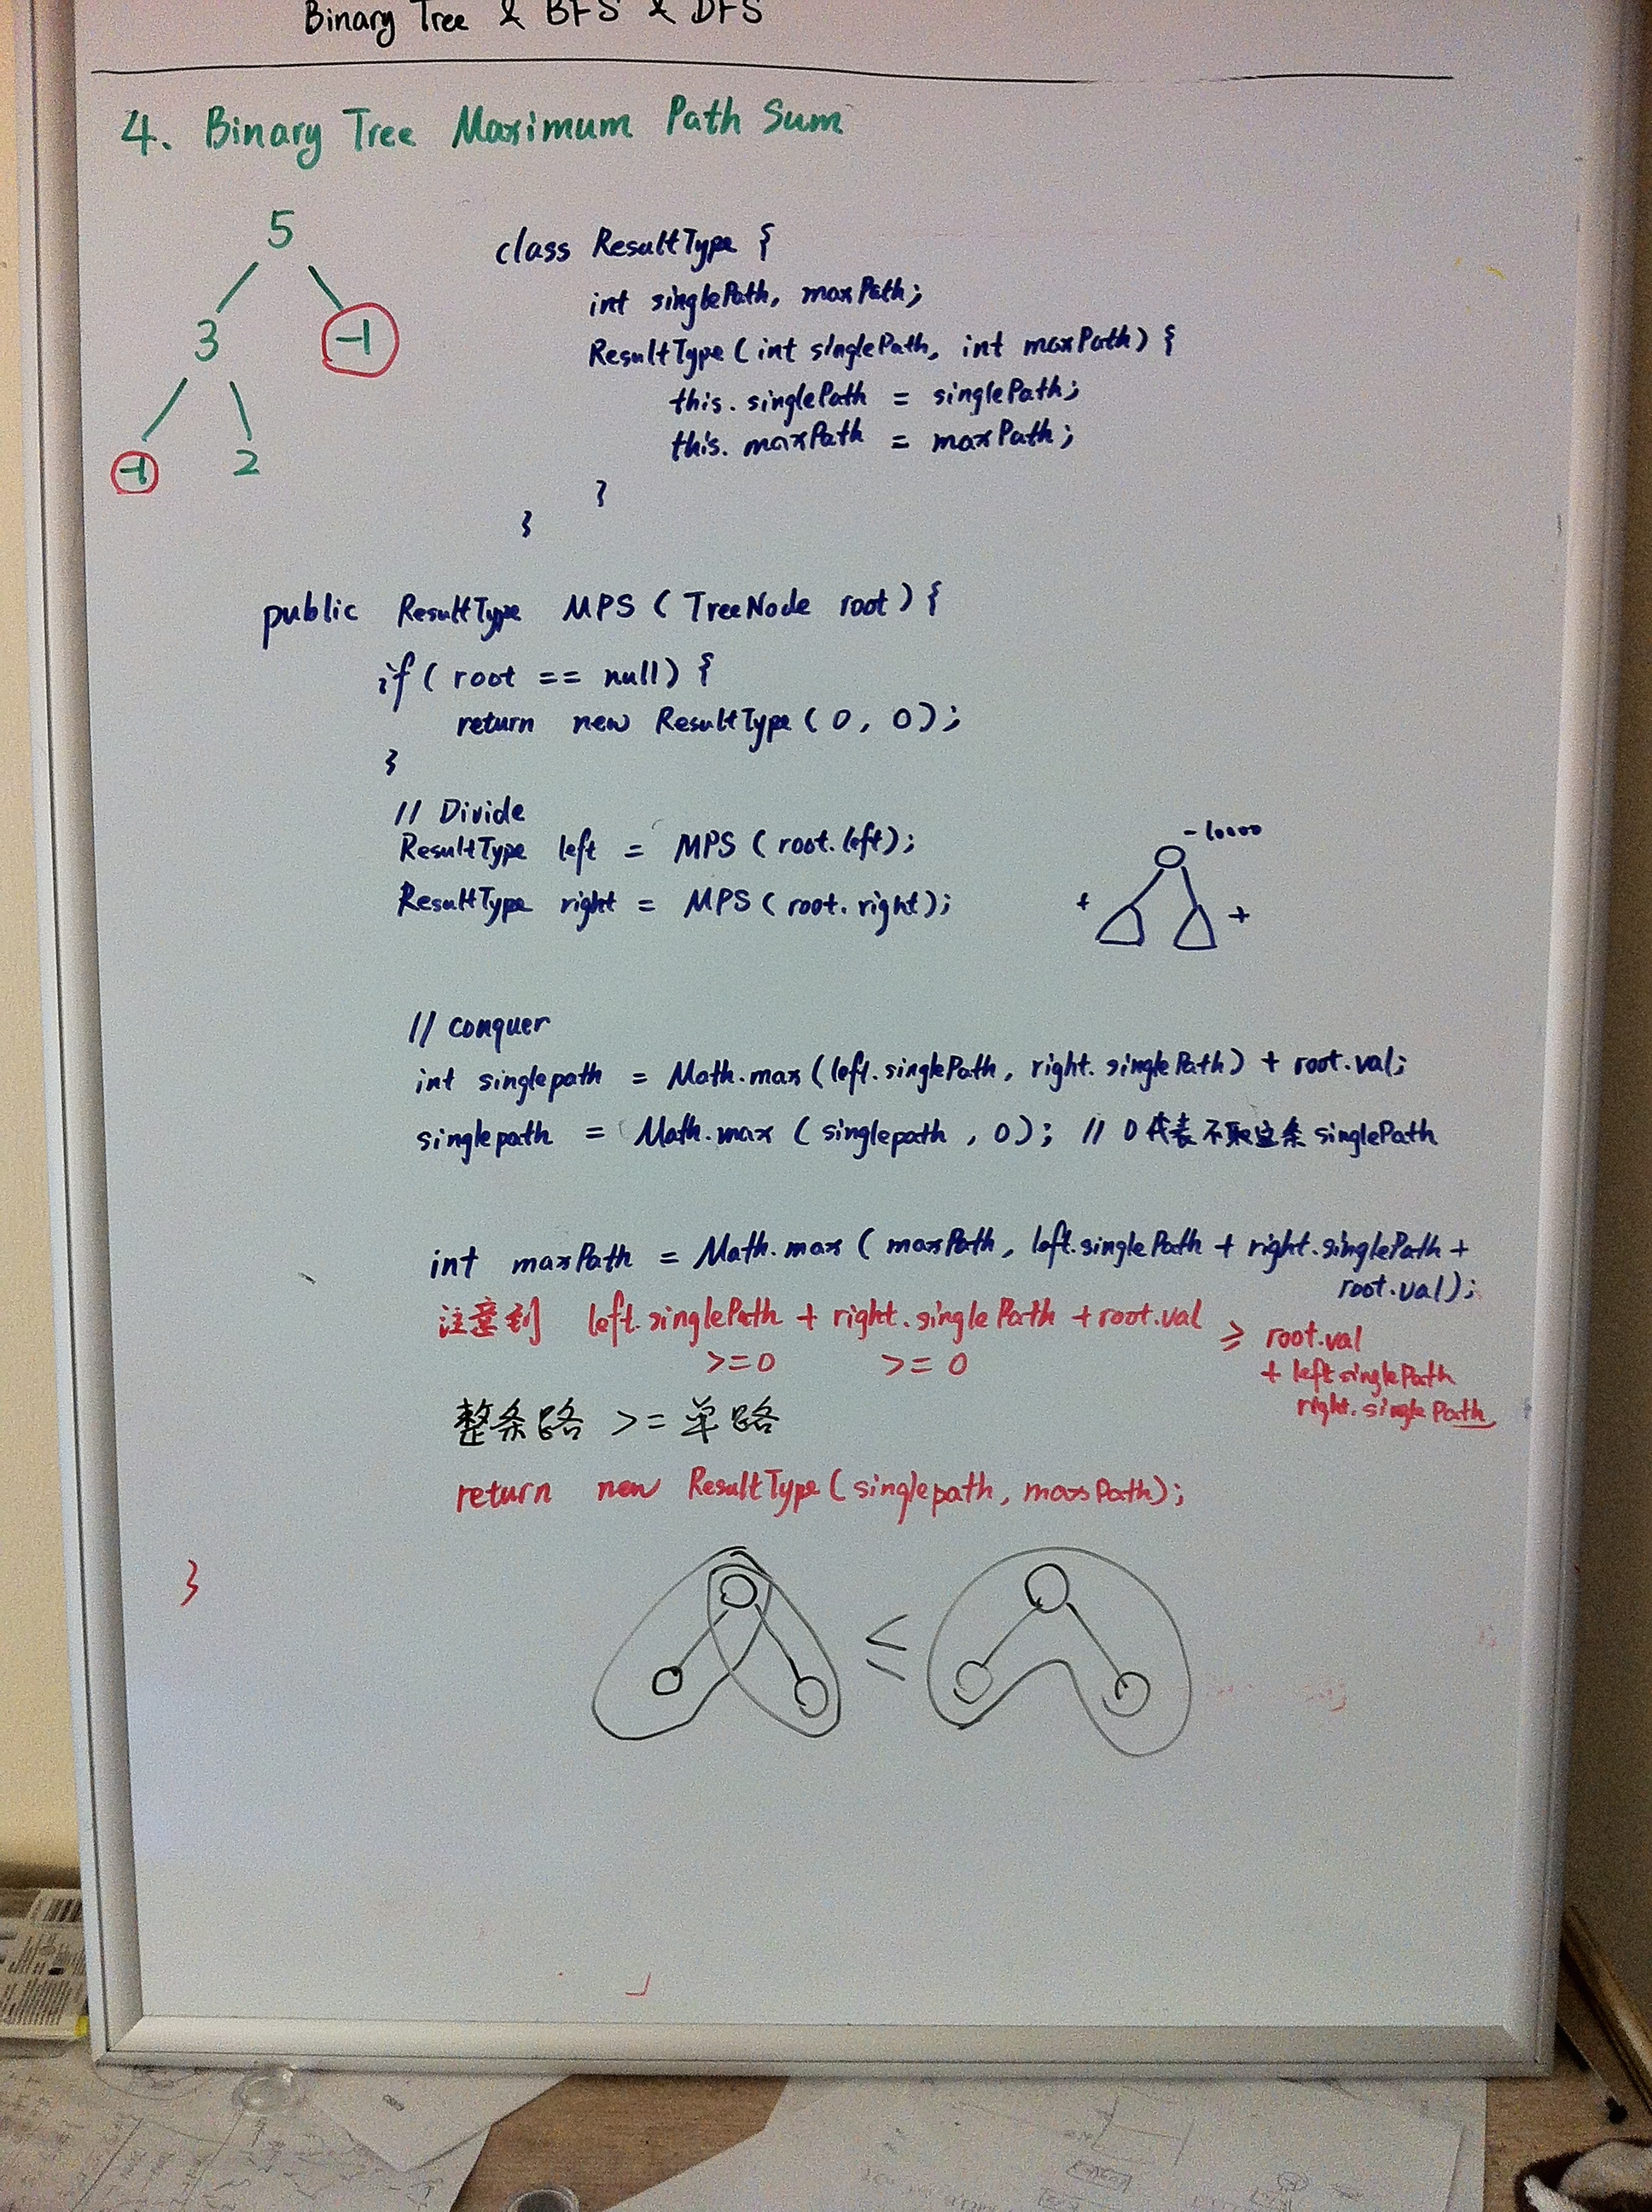 Binary Tree & BFS & DFS
4. Binary Tree Maximum Path Sum
5
3
-1
-1
2
class ResultType {
int singlePath, maxPath;
ResultType (int singlePath, int maxPath) {
this. singlePath = singlePath;
this. maxPath = maxPath;
}
}
public ResultType MPS ( TreeNode root ) {
if ( root == null ) {
return new ResultType ( 0, 0 );
}
// Divide
ResultType left = MPS ( root.left );
ResultType right = MPS ( root.right );
-10000
+
+
// Conquer
int singlepath = Math.max (left.singlePath, right. singlePath) + root.val;
singlepath = Math.max ( singlepath , 0 ); // 0 代表 不取这条 singlePath
int maxPath = Math.max ( maxPath, left.singlePath + right.singlePath +
root.val);
注意到 left.singlePath + right.singlePath + root.val ≥ root.val
>=0 >=0
+ left singlePath
right.singlePath
整条路 >= 单路
return new ResultType ( singlepath, maxPath );
}
≤